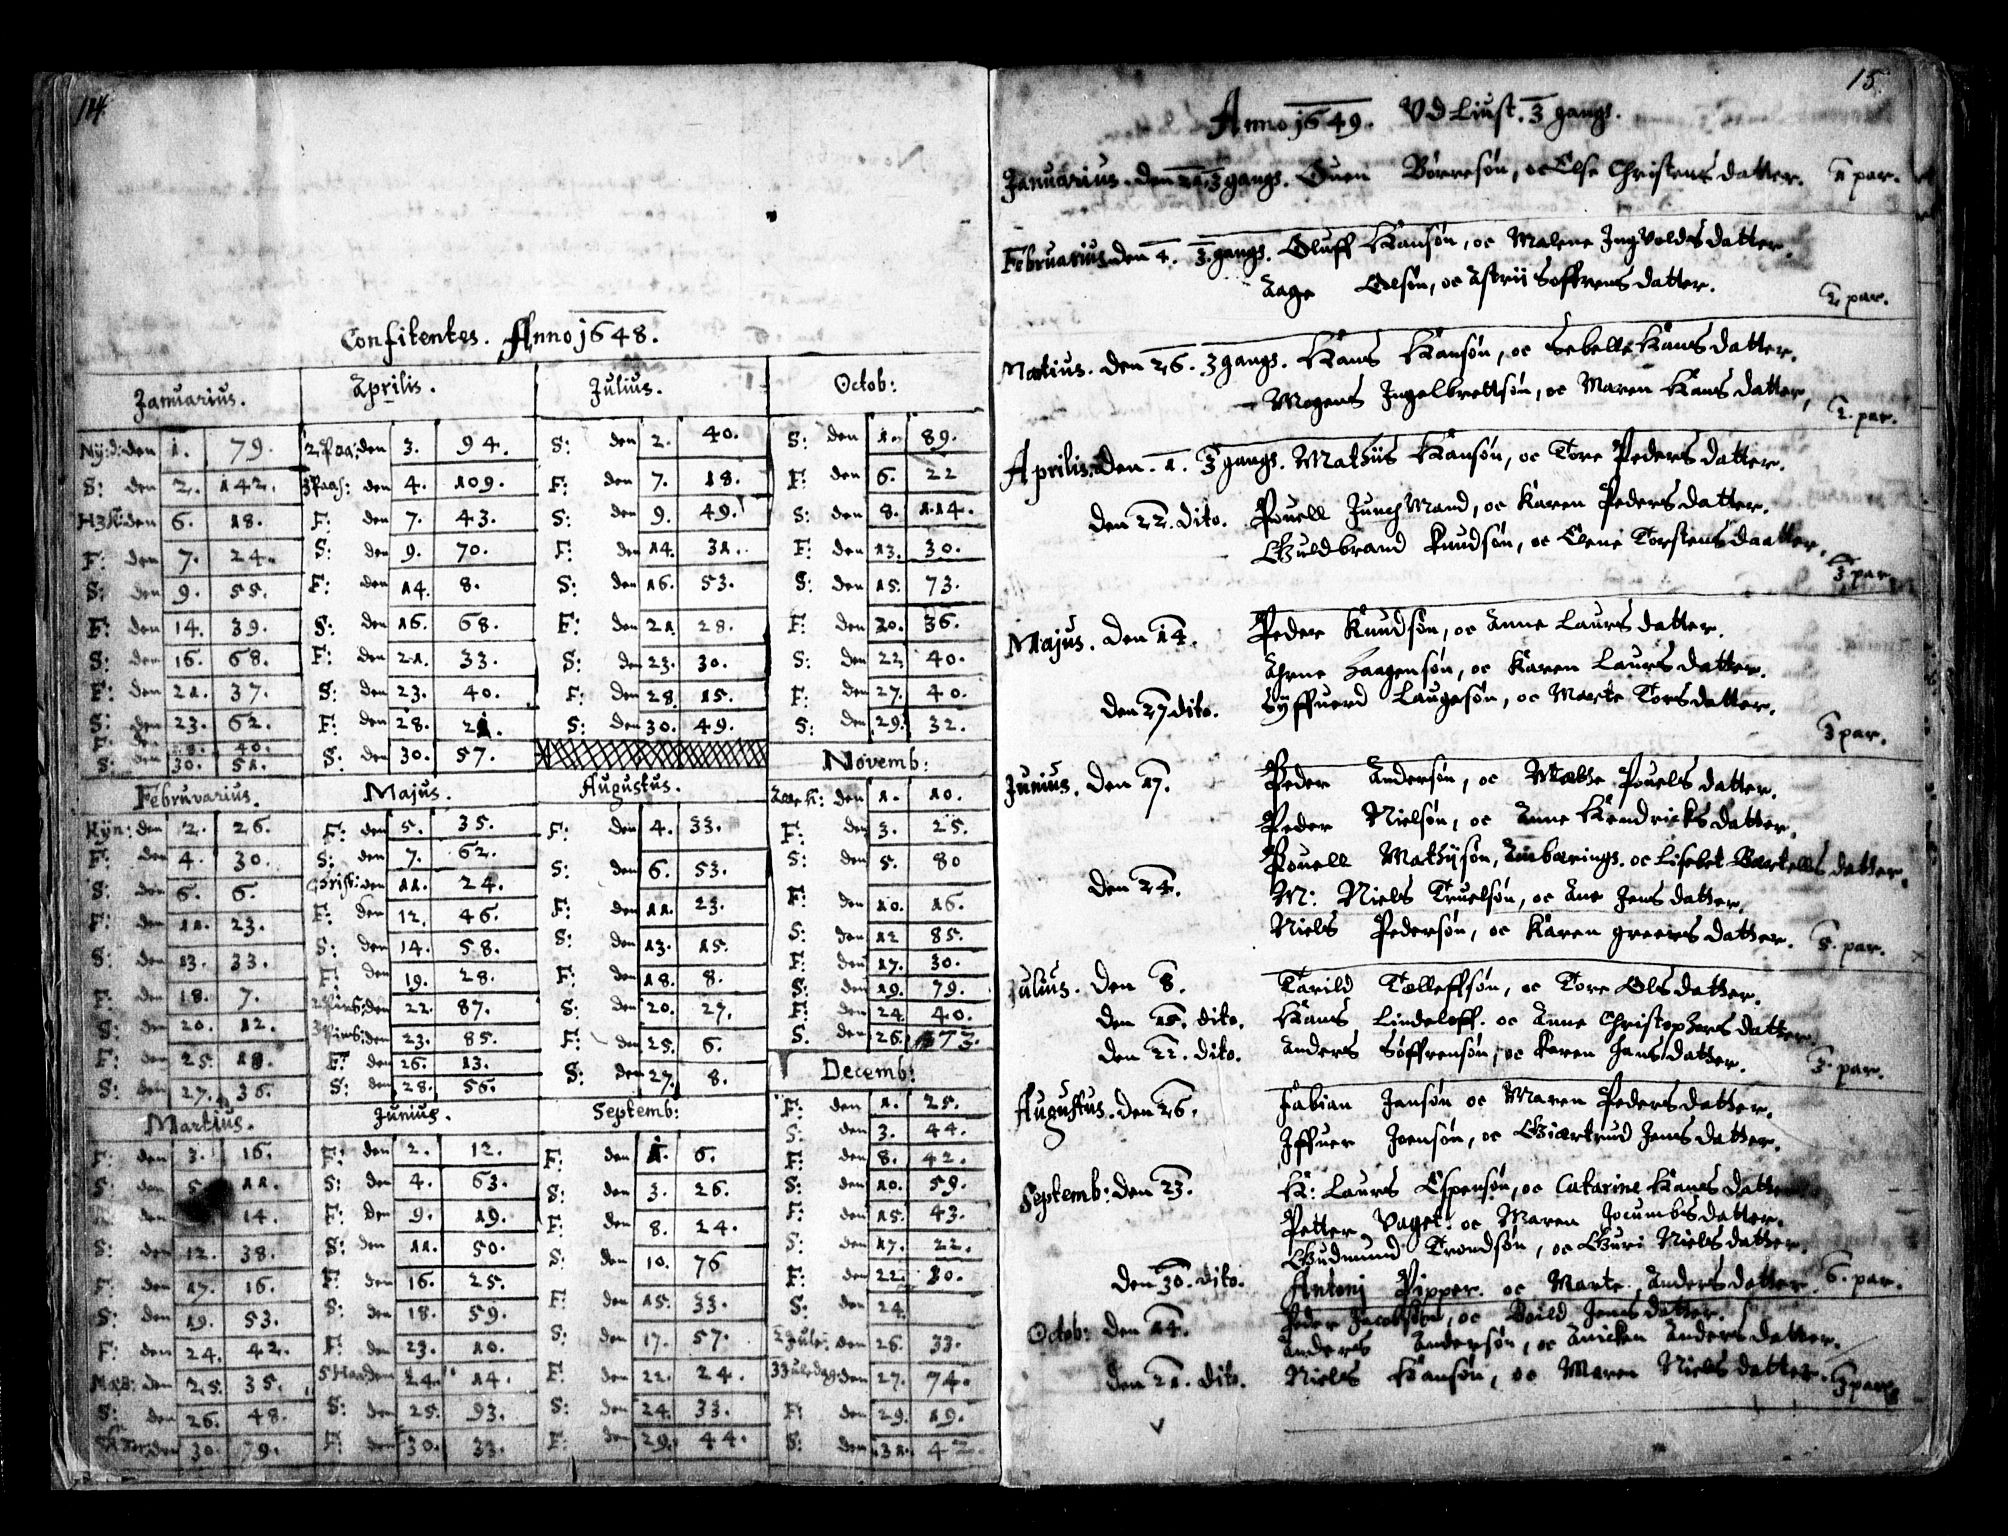 14.
Confitentes. Anno 1648.
Januarius.
Nÿ:d: den 1. 79.
S: den 2. 142.
H3K: den 6. 18.
F: den 7. 24.
S: den 9. 55.
F: den 14. 39.
S: den 16. 68.
F: den 21. 37.
S: den 23. 62.
F: den 28. 40.
S: den 30. 51.
Februarius.
Kÿn: den 2. 26.
F: den 4. 30.
S: den 6. 6.
F: den 11. 23.
S: den 13. 33.
F: den 18. 7.
S: den 20. 12.
F: den 25. 18.
S: den 27. 36.
Martius.
F: den 3. 16.
S: den 5. 11.
den 14.
S: den 12. 38.
F: den 17. 16.
S: den 19. 53.
F: den 24. 42.
Mar: den 25. 35.
S: den 26. 48.
den 30. 79.
Aprilis.
2 Paa: den 3. 94.
3 Paas: den 4. 109.
F: den 7. 43.
S: den 9. 70.
F: den 14. 8.
S: den 16. 68.
F: den 21. 33.
S: den 23. 40.
F: den 28. 21.
S: den 30. 57.
Majus.
F: den 5. 35.
S: den 7. 62.
Christi: den 11. 24.
F: den 12. 46.
S: den 14. 58.
F: den 19. 28.
2 Pins: den 22. 87.
3 Pins: den 23. 85.
F: den 26. 13.
S: den 28. 56.
Junius.
F: den 2. 12.
S: den 4. 63.
F: den 9. 19.
S: den 11. 50.
F: den 16. 25.
S: den 18. 59.
F: den 23. 10.
S Han: den 24. 14.
S: den 25. 93.
F: den 30. 33.
Julius.
S: den 2. 40.
F: den 7. 18.
S: den 9. 49.
F: den 14. 31.
S: den 16. 53.
F: den 21. 28.
S: den 23. 30.
F: den 28. 15.
S: den 30. 49.
Augustus.
F: den 4. 33.
S: den 6. 53.
F: den 11. 23.
S: den 13. 15.
F: den 18. 8.
S: den 20. 27.
F: den 25. 6.
S: den 27. 8.
Septemb:
F: den 1. 6.
S: den 3. 26.
F: den 8. 24.
S: den 10. 76
F: den 15. 33.
S: den 17. 57.
F: den 22. 24.
S: den 24. 33.
F: den 29. 44.
Octob:
S: den 1. 89.
F: den 6. 22
S: den 8. 114.
F: den 13. 30.
S: den 15. 73.
F: den 20. 36.
S: den 22. 40.
F: den 27. 40.
S: den 29. 32.
Novemb:
den 1. 10.
F: den 3. 25.
S: den 5. 80
F: den 10. 16.
S: den 12 85.
F: den 17. 30.
S: den 19. 79.
F: den 24. 40.
S. den 26. 73.
Decemb:
F: den 1. 25.
S: den 3. 44.
F: den 8. 42.
S: den 10. 59.
F: den 15. 43.
S: den 17. 22.
F: den 22. 30.
S: den 24.
2 Jule: den 26. 33.
3 Juledag den 27. 74.
F: den 29. 19.
S: den 31. 42.
15.
Anno 1649. Vd Liust. 3 gangs.
Januarius. den 21. 3 gangs. Suen Börresön, oc Else Christens datter. 1 par.
Februarius den 4. 3. gangs. Oluff Hansön, oc Malene Ingvolds datter.
Aage Olsön, oc Astrii Soffrens datter. 2 par.
Martius. den 26. 3 gangs. Hans Hansön, oc Sebelle Hans datter.
Mogens Ingelbrettsön, oc Maren Hans datter, 2. par.
Aprilis. den. 1. 3 gangs. Mathiis Hansön, oc Tore Peders datter.
den 22. dito. Pouell Jungmand, oc Karen Peders datter.
Guldbrand Knudsön, oc Elene Torstens daatter. 3 par.
Majus. den 14. Peder Knudsön, oc Anne Laurs datter.
Arne Haagensön, oc Karen Laurs datter.
den 27 dito. Syffuerd Laugesön, oc Marte Tors datter.
3 par.
Junius. den 17. Peder Andersön, oc Pouels datter.
Peder Nielsön, oc Anne Hendricks datter.
Pouell Mathÿsön, oc Lisebet Bartells datter.
den 24. M: Niels Truelsön, oc Ane Jens datter.
Niels Pedersön, oc Karen greeirs datter. 5. par.
Julius. den 8. Tarild Tolleffsön, oc Tore Ols datter.
den 15. dito. Hans Lindeloff. oc Anne Christophers datter.
den 22. dito. Anders Söffrensön, oc Karen Hans datter. 3. par.
Augustus. den 26. Fabian Jansön oc Maren Peders datter.
Iffuer Joensön, oc Giertrud Jens datter.
Septemb: den 23. H: Laurs Espensön, oc Catarine Hans datter
Petter Vaget. oc Maren Jocumbs datter.
Gudmund Trondsön, oc Guri Niels datter.
den 30. dito. Antonj Pipper. oc Marte Anders datter. 6. par.
Octob: den 14. Peder Jacobsön, oc Boild Jens datter.
Anders Andersön, oc Anicken Anders datter.
den 21. dito. Niels Hansön, oc Maren Niels datter. 3 par.